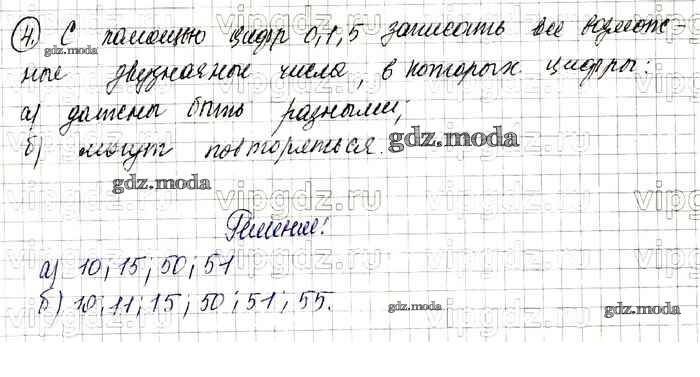 4. С помощью цифр 0, 1, 5 записать все возмож-
ные двузначные числа, в которых цифры:
а) должны быть разными;
б) могут повторяться.
Решение:
а) 10; 15; 50; 51
б) 10; 11; 15; 50; 51; 55.
gdz.moda
gdz.moda
gdz.moda
gdz.moda
gdz.moda
vipgdz.ru